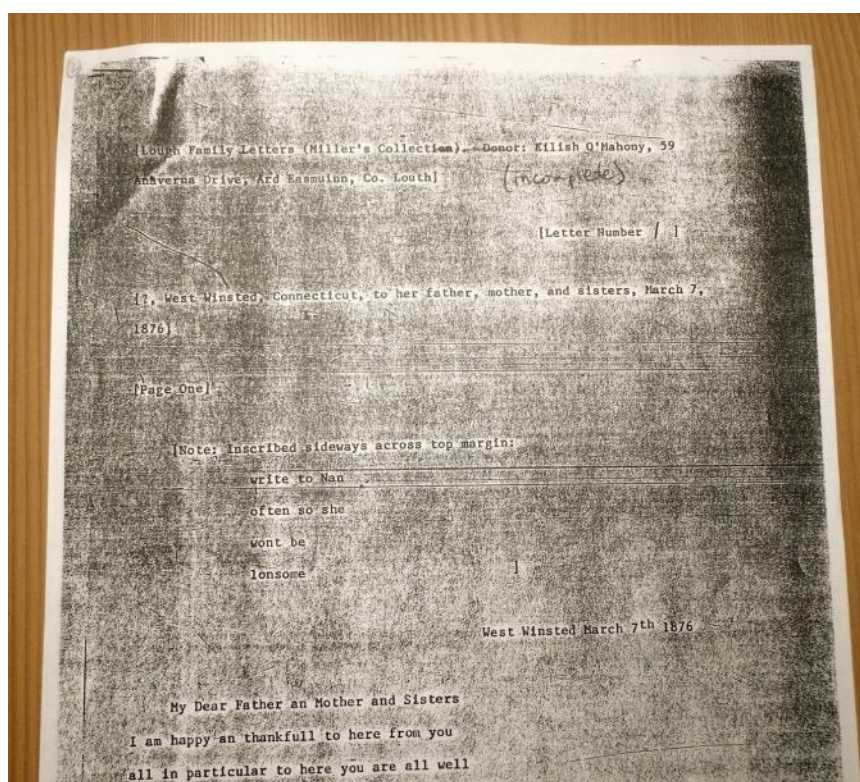 [Lough Family Letters (Miller's Collection). Donor: Eilish O'Mahony, 59
Anaverna Drive, Ard Easmuinn, Co. Louth]
(incomplete)
[Letter Number / ]
[?, West Winsted, Connecticut, to her father, mother, and sisters, March 7,
1876]
[Page One]
[Note: Inscribed sideways across top margin:
write to Nan
often so she
wont be
lonsome ]
West Winsted March 7th 1876
My Dear Father an Mother and Sisters
I am happy an thankfull to here from you
all in particular to here you are all well